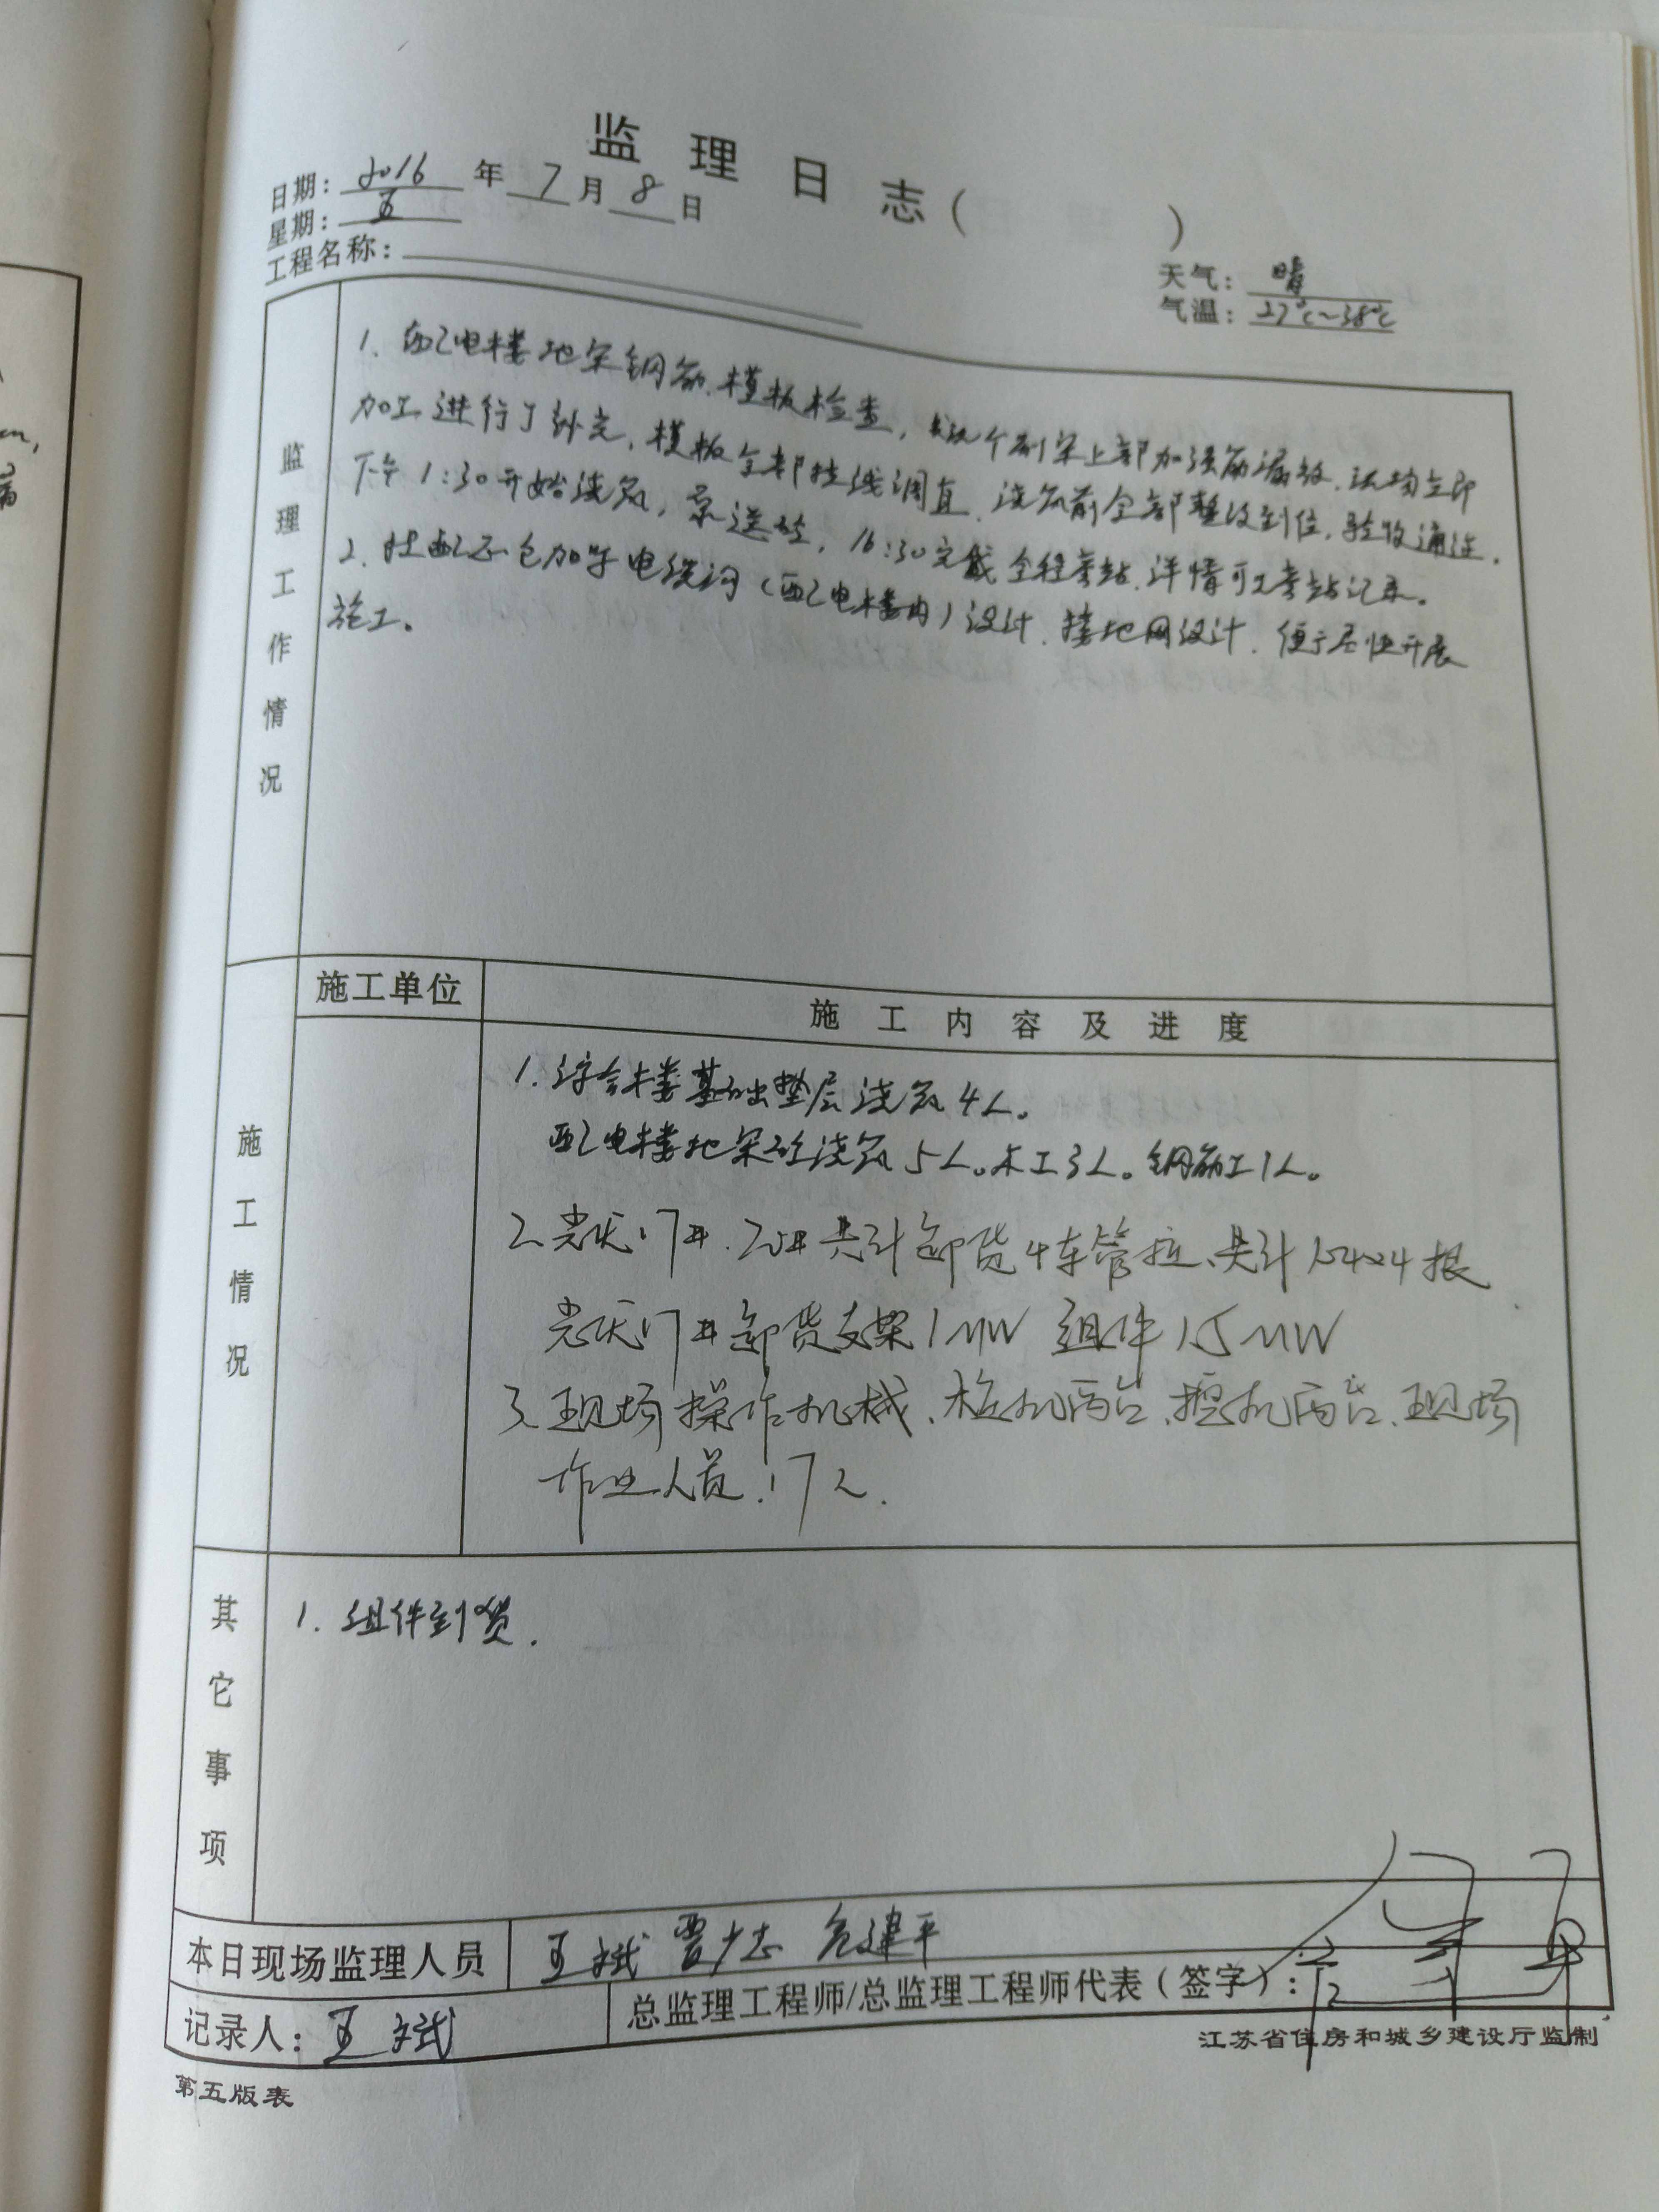 监理日志（　　）
日期：2016年7月8日
星期：五
工程名称：
天气：晴
气温：27℃~38℃
监理工作情况
1. 配电楼地梁钢筋、模板检查，个别梁上部加强筋漏放，立即
加工进行了补充，模板全部拉线调直，浇筑前全部整改到位，验收通过。
下午1:30开始浇筑，泵送砼，16:30完成全程旁站，详情可见旁站记录。
2. 电缆沟（配电楼内）设计、接地网设计，便于尽快开展
施工。
施工情况
施工单位
施工内容及进度
1. 综合楼基础垫层浇筑4人。
配电楼地梁砼浇筑5人。木工3人。钢筋工1人。
2. 光伏17#、20#共计卸货4车管桩、共计
光伏17#卸货支架1MW 组件1.5MW
3. 现场操作机械、桩机两台、挖机两台、现场
作业人员：17人.
其它事项
1. 组件到货.
本日现场监理人员 王斌 贾少志 危建平
记录人：王斌
总监理工程师/总监理工程师代表（签字）：
江苏省住房和城乡建设厅监制
第五版表